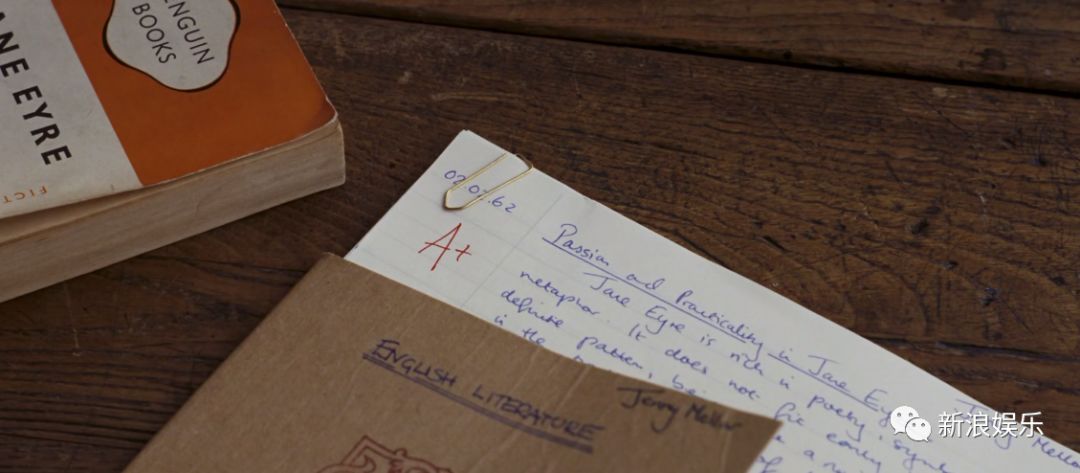 PENGUIN
BOOKS
ANE EYRE
FICT
02.0 .62
A+
Passion and Practicality in Jane Ey
Jane Eyre is rich in poetry,
metaphor. It does not fit
definite pattern,
in the
ENGLISH LITERATURE
Jenny Mellor
新浪娱乐